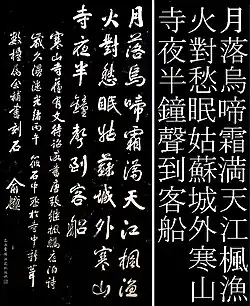 月落烏啼霜満天江楓漁
火對愁眠姑蘇城外寒山
寺夜半鐘聲到客船
月落烏啼霜滿天江楓漁
火對愁眠姑蘇城外寒山
寺夜半鐘聲到客船
寒山寺舊有文待詔所書唐張繼楓橋夜泊詩
歲久漫漶光緒丙午筱石中丞於寺中新葺
數楹屬余補書刻石
俞樾